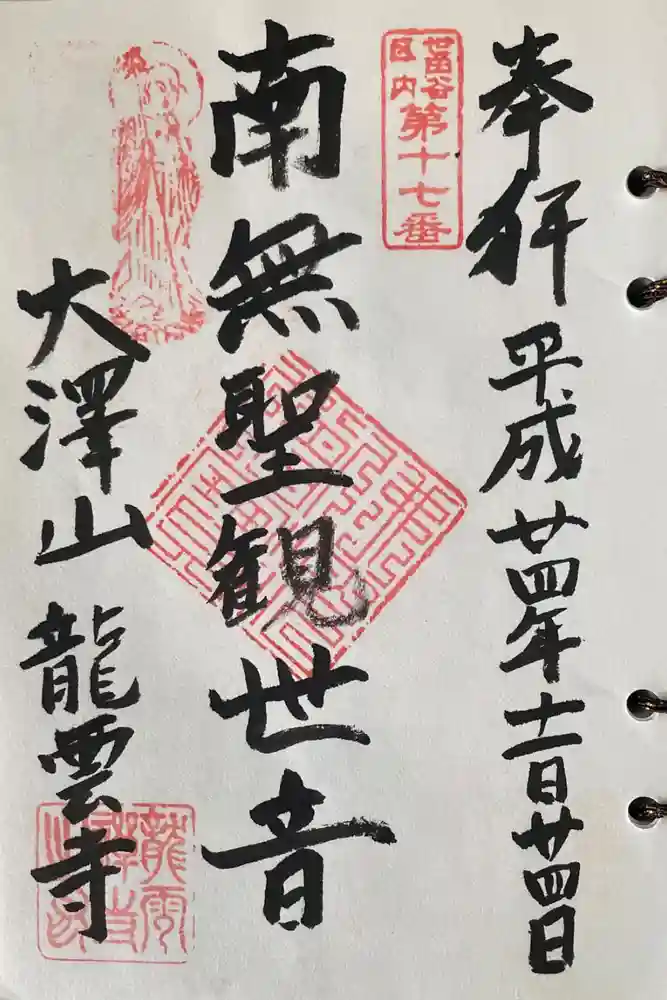 奉拝 平成廿四年十一月廿四日
世田谷区内 第十七番
南無聖観世音
大澤山 龍雲寺